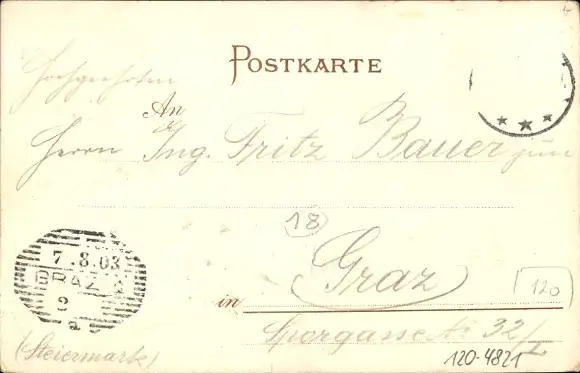 POSTKARTE
Hochgeehrten
An
Herrn Ing. Fritz Bauer jun
18
7.8.03
GRAZ 2
a
Graz
120
in
Sporgasse No 32/I
(Steiermark)
120-4821